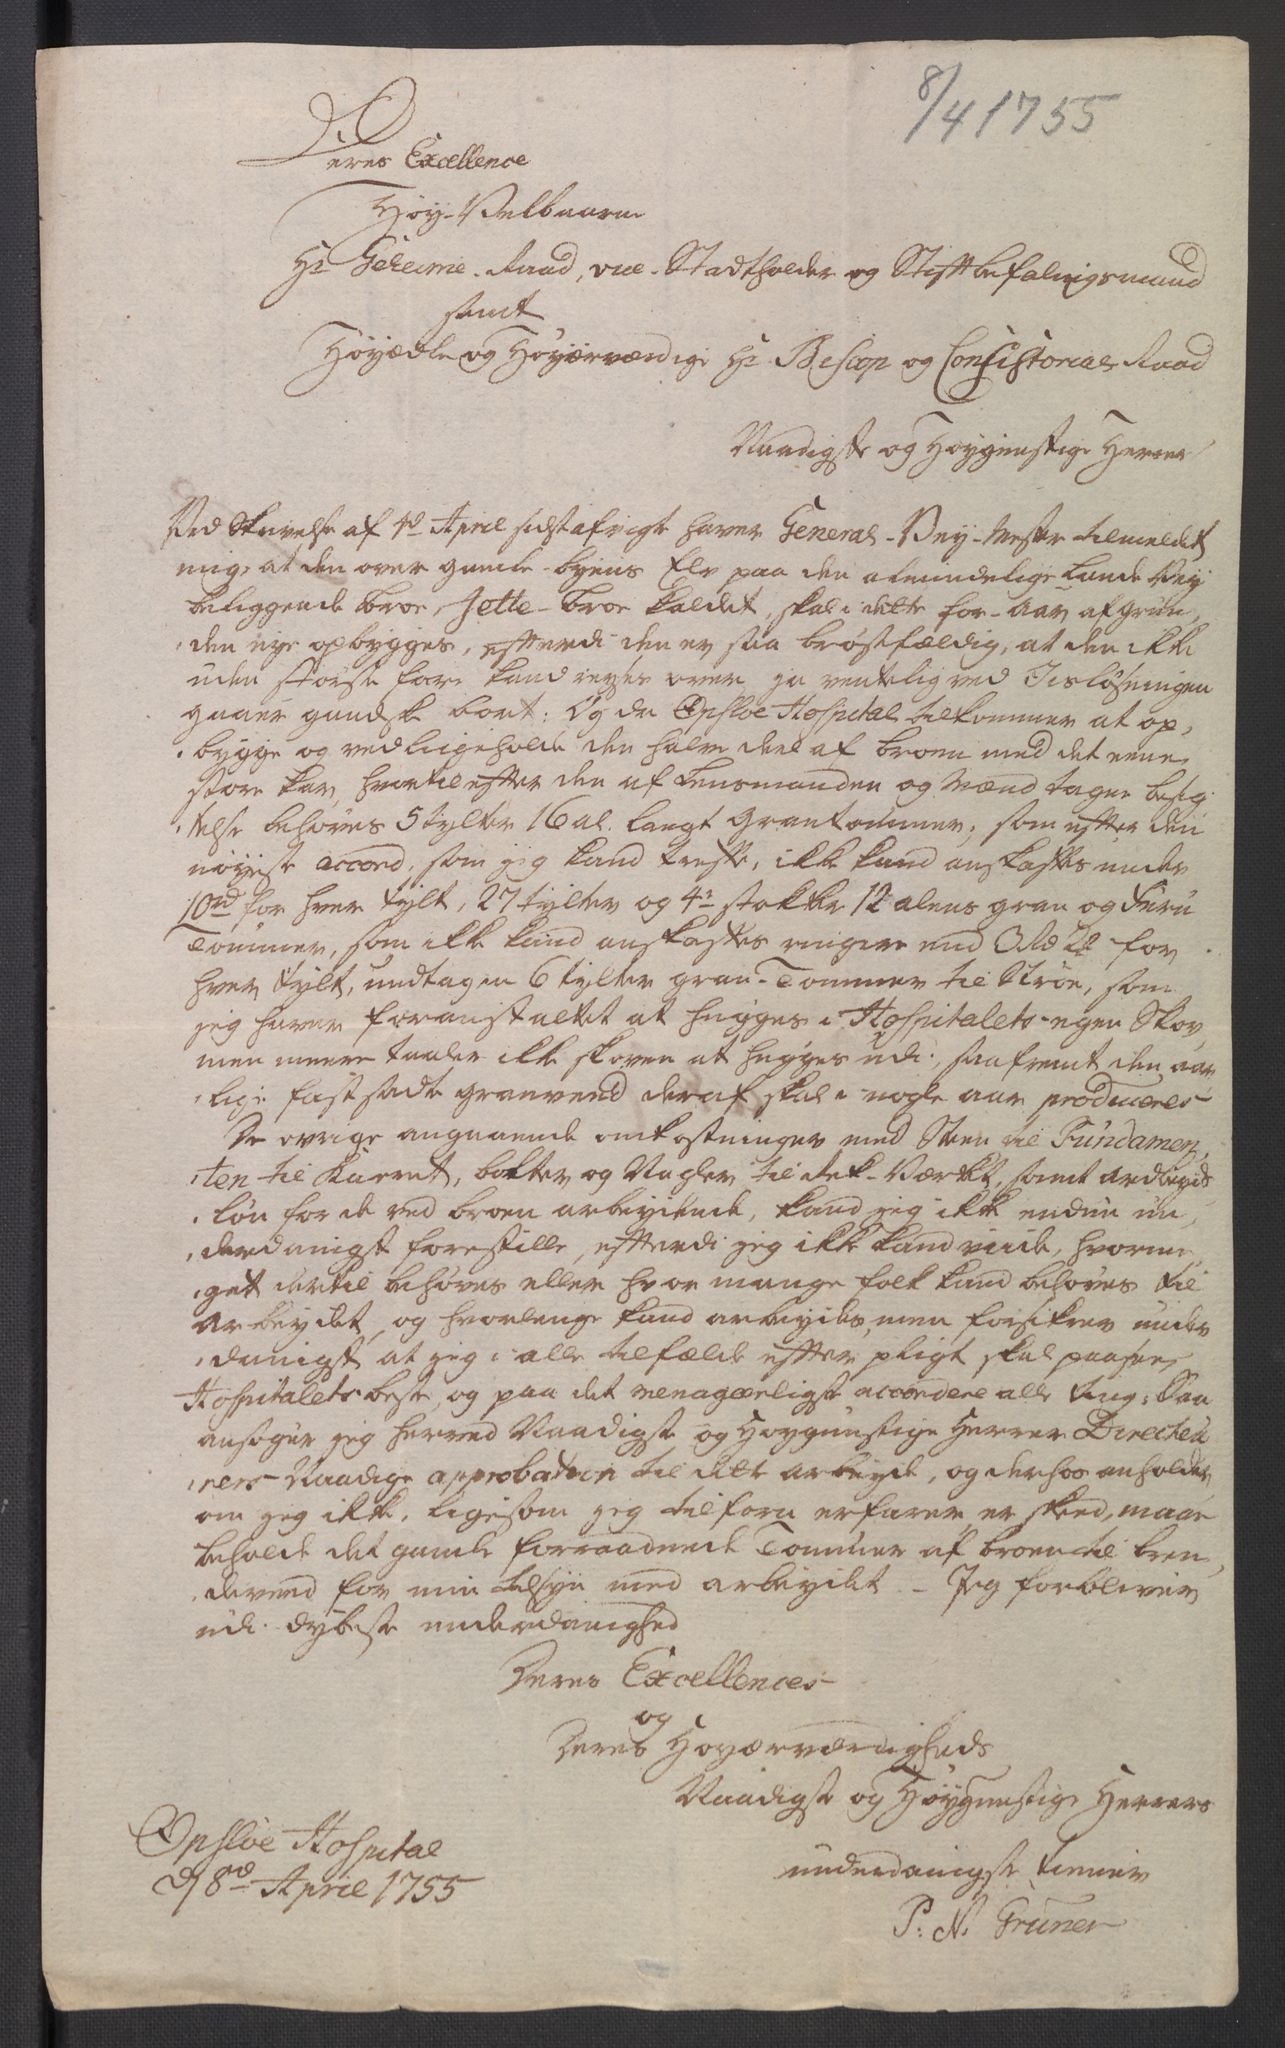 8/4 1755
Deres Excellence
Høy-Velbaarne
Hr Geheime-Raad, vice-Stadtholder og Stiftbefalingsmand
samt
Høyædle og Høyærværdige Hr Biscop og Consistorial Raad
Naadigste og Høygunstige Herrer
Ved Skrivelse af 4de April sidst afvigte haver General-Vey-Mester tilmeldet
mig, at den over gamle-byens Elv paa den almindelige Lande Vey
beliggende Broe, Jette-Broe kaldet, skal i dette for-Aar af grun,,
,,den nye opbygges, efterdi den er saa brøstfældig, at den ikke
uden største fare kand reyses over, ja ventelig ved Iisløsningen
gaaer gandske bort: Og da Opsloe Hospital tilkommer at op,,
,,bygge og vedligeholde den halve deel af broen med det eene
store kar, hvortil efter den af Lensmanden og Mænd tagne besig,,
,,telse behøves 5 tylter 16 al. langt Grantømmer, som efter den
nøyeste accord, som jeg kand træffe, ikke kand anskaffes under
10rd for hver tylt, 27 tylter og 4re stokke 12 alens gran og Furu
Tømmer, som ikke kand anskaffes ringere end 3 rd for
hver tylt, undtagen 6 tylter gran-Tømmer til Strøe, som
jeg haver foranstaltet at hugges i Hospitalets egen Skov,
men meere taaler ikke skoven at hugges udi, saafremt den aar,,
,,lige fastsadte granveed deraf skal i nogle aar produceres
De øvrige angaaende omkostninger med Steen til Fundamen,,
,,ten til Karret, bolter og Nagler til dek-Værket, samt arbeyds,,
,,løn for de ved broen arbeydende, kand jeg ikke endnu un,,
,,derdanigst forestille, efterdi jeg ikke kand viide, hvor me,,
,,get dertil behøves eller hvor mange folk kand behøves til
Arbeydet, og hvorlenge kand arbeydes, men forsikrer under,,
,,danigst, at jeg i alle tilfælde efter pligt skal paasee
Hospitalets beste, og paa det menagerligste accordere alle ting. Saa
ansøger jeg herved Naadigste og Høygunstige Herrer Directeu,,
,,rers Naadige approbation til dette arbeyde, og derhos anholder,
om jeg ikke, ligesom jeg tilforn erfarer er skeed, maae
beholde det gamle forraadnede Tømmer af broen til bren,,
,,deveed for min tilsyn med arbeydet - Jeg forbliver
udi dybeste underdanighed
Deres Excellences
og
Deres Høyærværdigheds
Naadigste og Høygunstige Herrers
underdanigste tiener
P: N. Gruner
Opsloe Hospital
d 8de April 1755